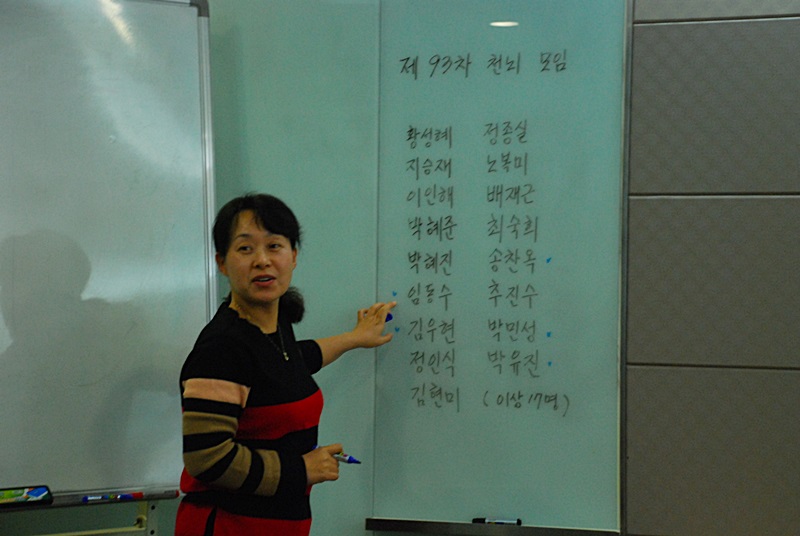 제 93차 천뇌 모임
황성혜 정종실
지승재 노복미
이인해 배재근
박혜준 최숙희
박혜진 송찬옥
임동수 추진수
김우현 박민성
정인식 박유진
김현미 (이상 17명)